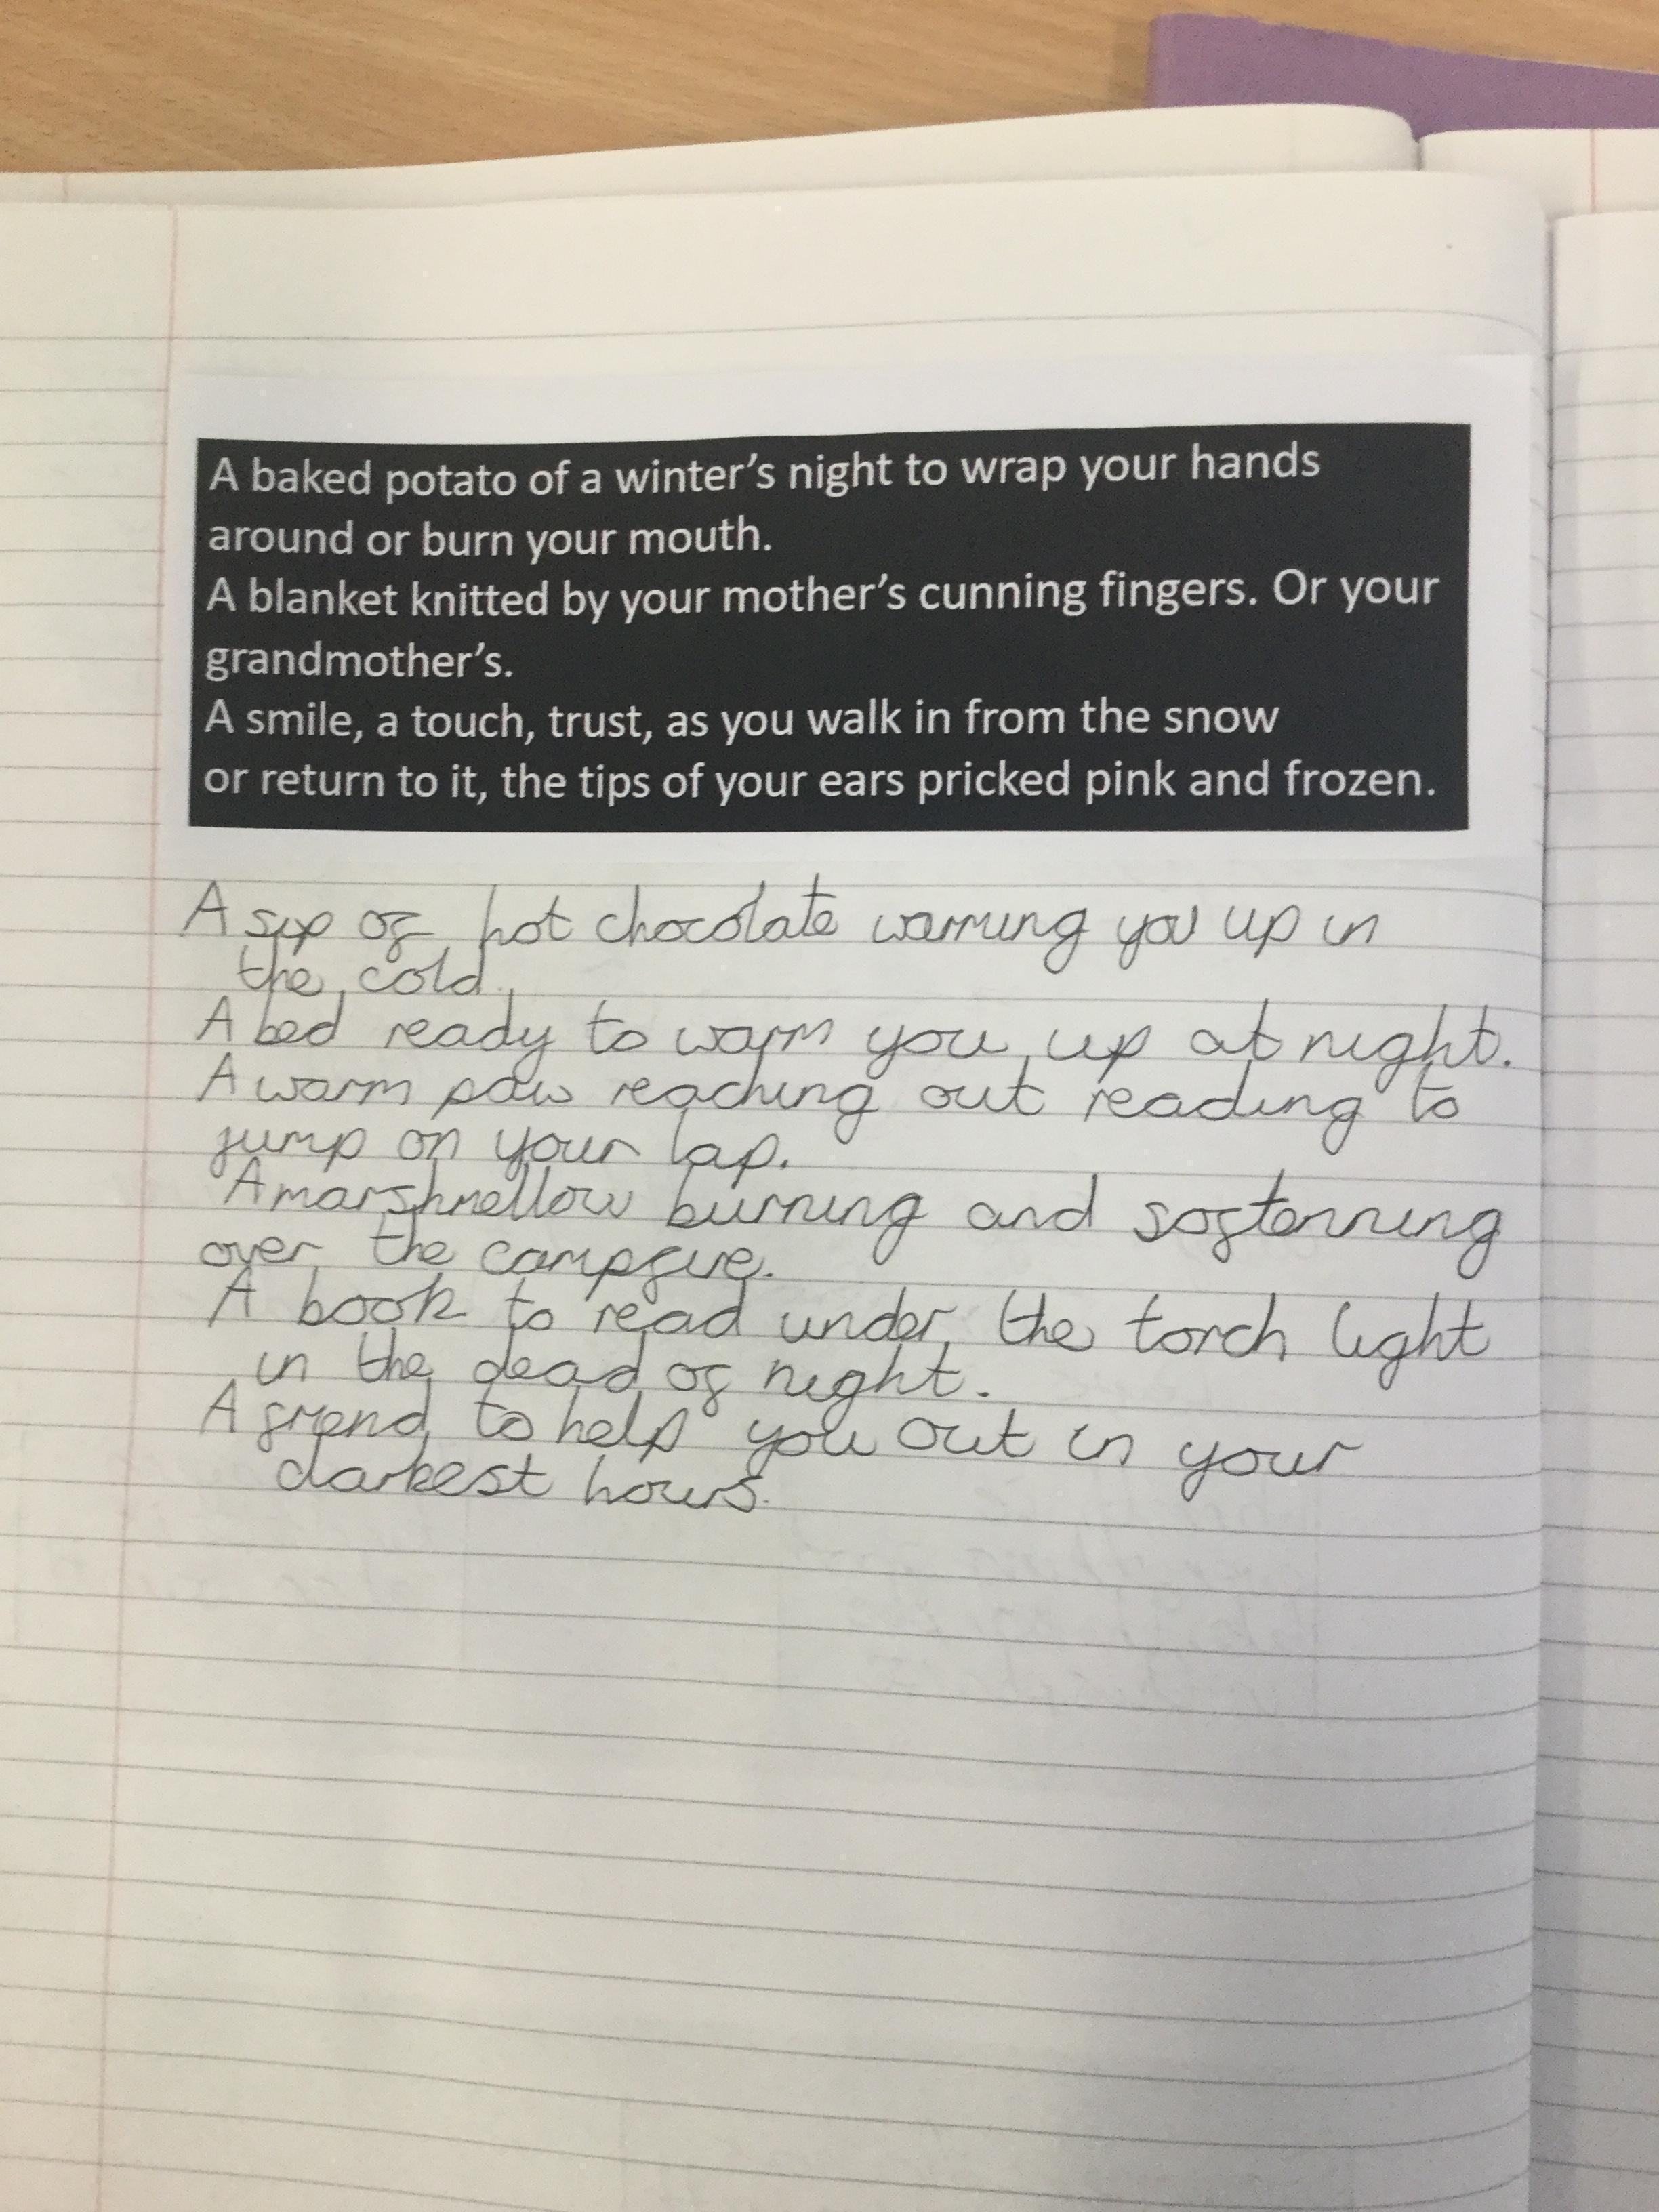 A baked potato of a winter's night to wrap your hands
around or burn your mouth.
A blanket knitted by your mother's cunning fingers. Or your
grandmother's.
A smile, a touch, trust, as you walk in from the snow
or return to it, the tips of your ears pricked pink and frozen.
A sip of hot chocolate warming you up in
the cold.
A bed ready to warm you up at night.
A warm paw reaching out reading to
jump on your lap.
A marshmellow burning and softenning
over the campfire.
A book to read under the torch light
in the dead of night.
A friend to help you out in your
darkest hours.